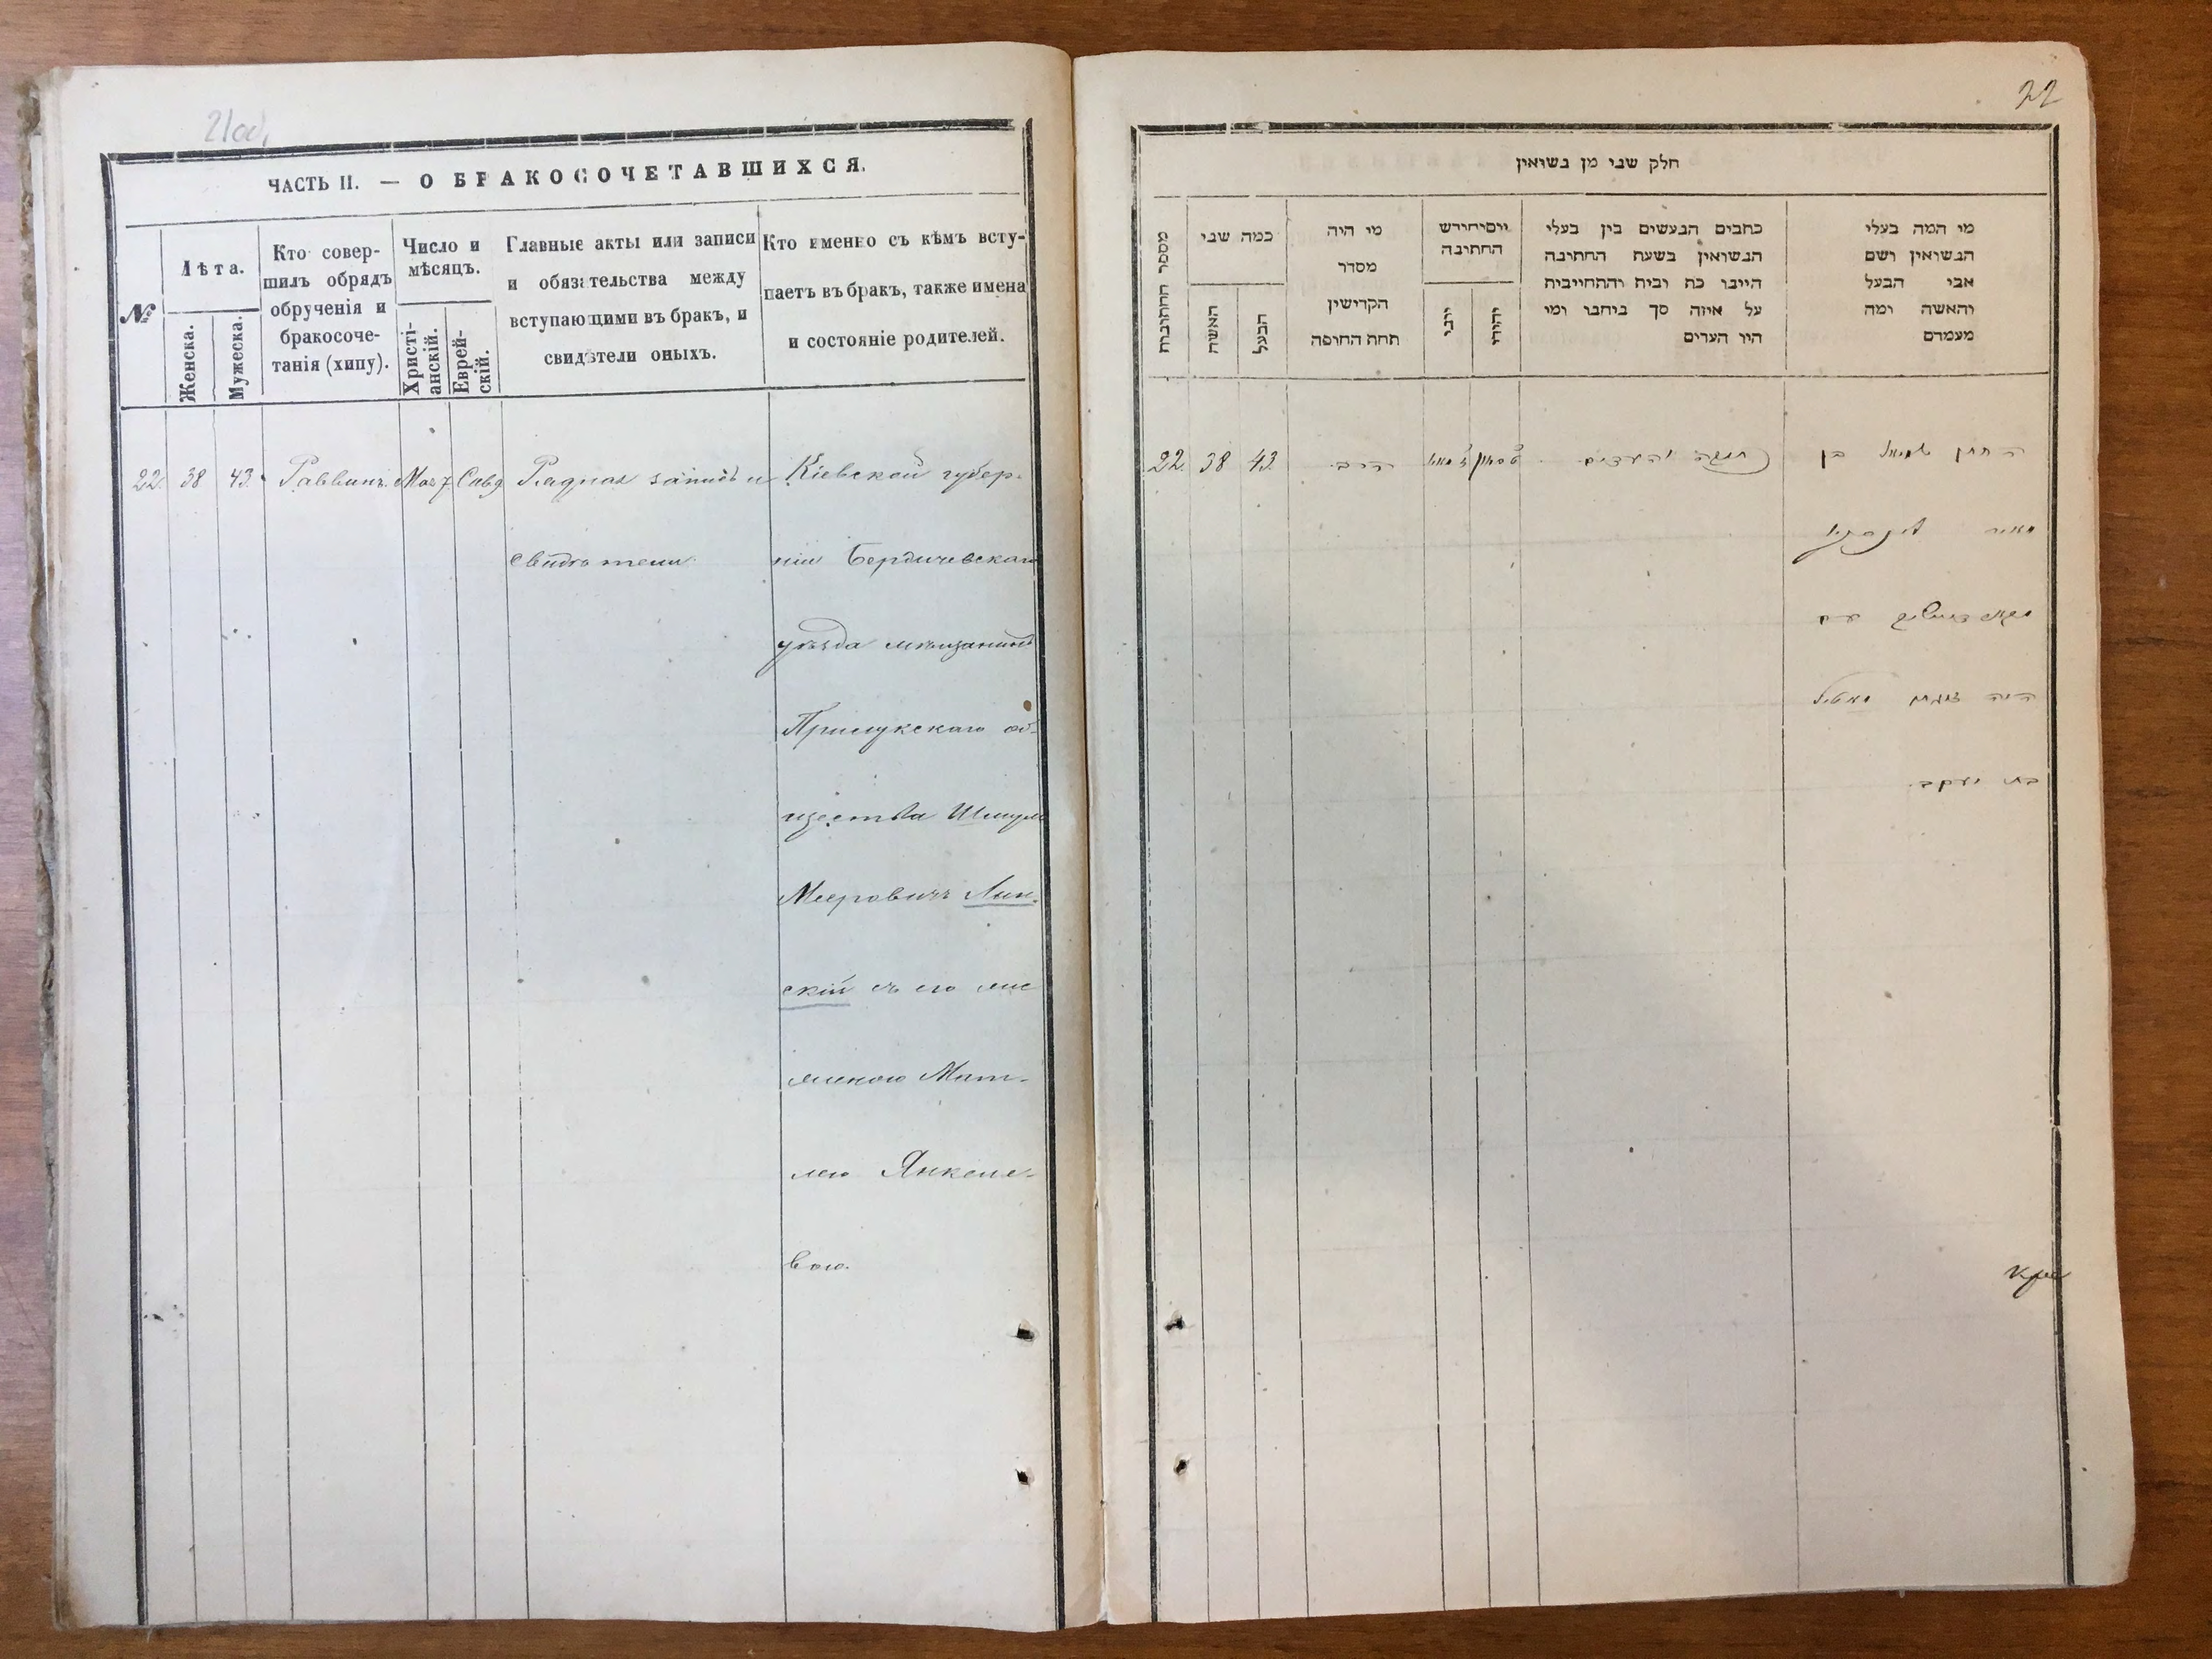 21об,
ЧАСТЬ II. — О БРАКОСОЧЕТАВШИХСЯ.
№
Лѣта.
Женска.
Мужеска.
Кто совер-
шилъ обрядъ
обрученія и
бракосоче-
танія (хипу).
Число и
мѣсяцъ.
Христі-
анскій.
Еврей-
скій.
Главные акты или записи
и обязательства между
вступающими въ бракъ, и
свидѣтели оныхъ.
Кто именно съ кѣмъ всту-
паетъ въ бракъ, также имена
и состояніе родителей.
22. 38 43. Раввинъ. Мая 7 Рядная запись и Кіевской губер-
свидѣтели. ніи Бердичевскаго
уѣзда мѣщанинъ
Прилукскаго об-
щества Шмуль
Мееровичъ Лин-
скій съ его
Мат-
лею Янкеле-
вою.
22
חלק שני מן נשואין
מספר החתונות
כמה שני
האשה
הבעל
מי היה
מסדר
הקדישין
תחת החופה
יוםיחודש
החתונה
יוני
יהודי
כתבים הנעשים בין בעלי
הנשואין בשעת החתונה
היינו כת ובית והתחייבית
על איזה סך ביחבו ומי
היו העדים
מי המה בעלי
הנשואין ושם
אבי הבעל
והאשה ומה
מעמדם
22. 38 43. הרב. והעדים. החתן שמואל בן
מאיר
עם
היה מאטיל
בת יעקב.